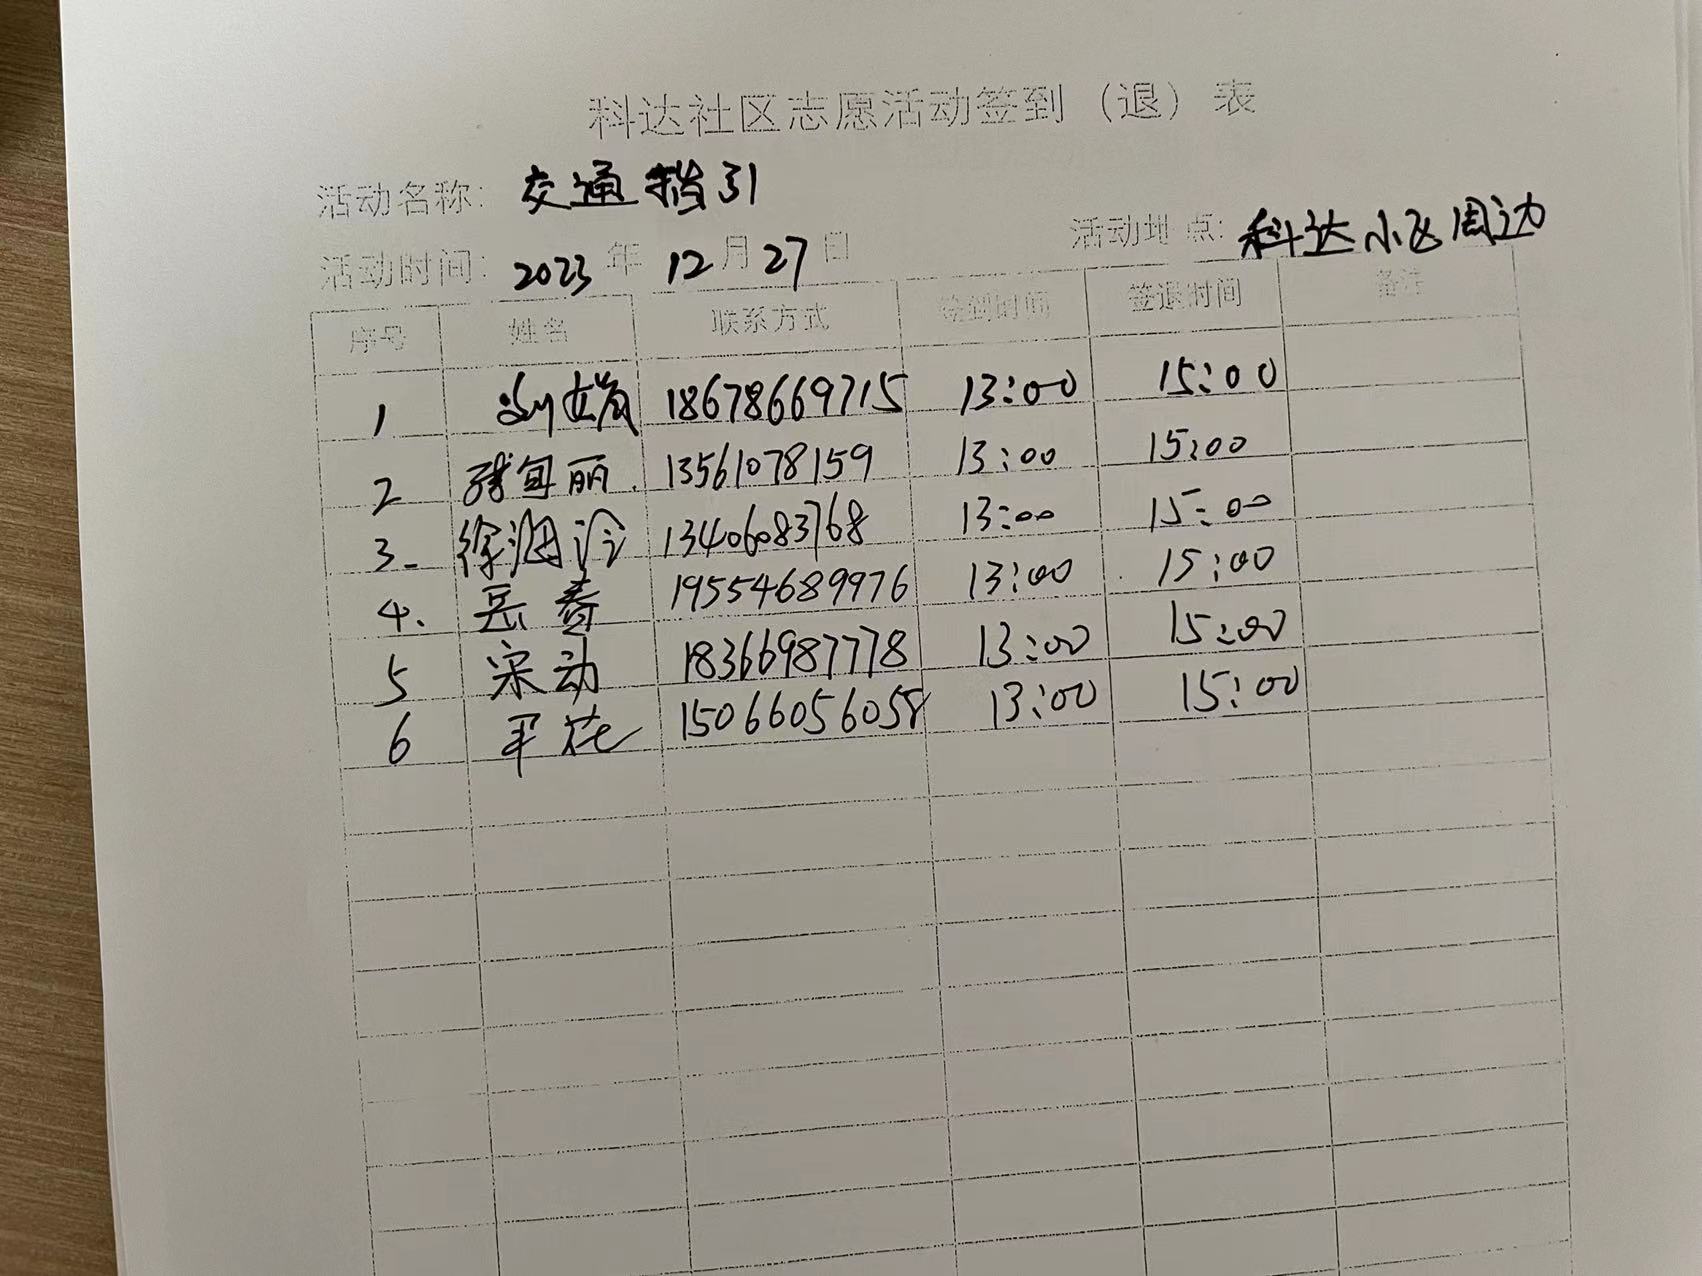 科达社区志愿活动签到（退）表
活动名称：交通指引
活动时间：2023年12月27日 活动地点：科达小区周边
序号 姓名 联系方式 签到时间 签退时间 备注
1 18678669715 13:00 15:00
2 丽 13561078159 13:00 15:00
3 徐 13406083768 13:00 15:00
4. 岳春 19554689976 13:00 15:00
5 宋动 18366987778 13:00 15:00
6 花 15066056058 13:00 15:00